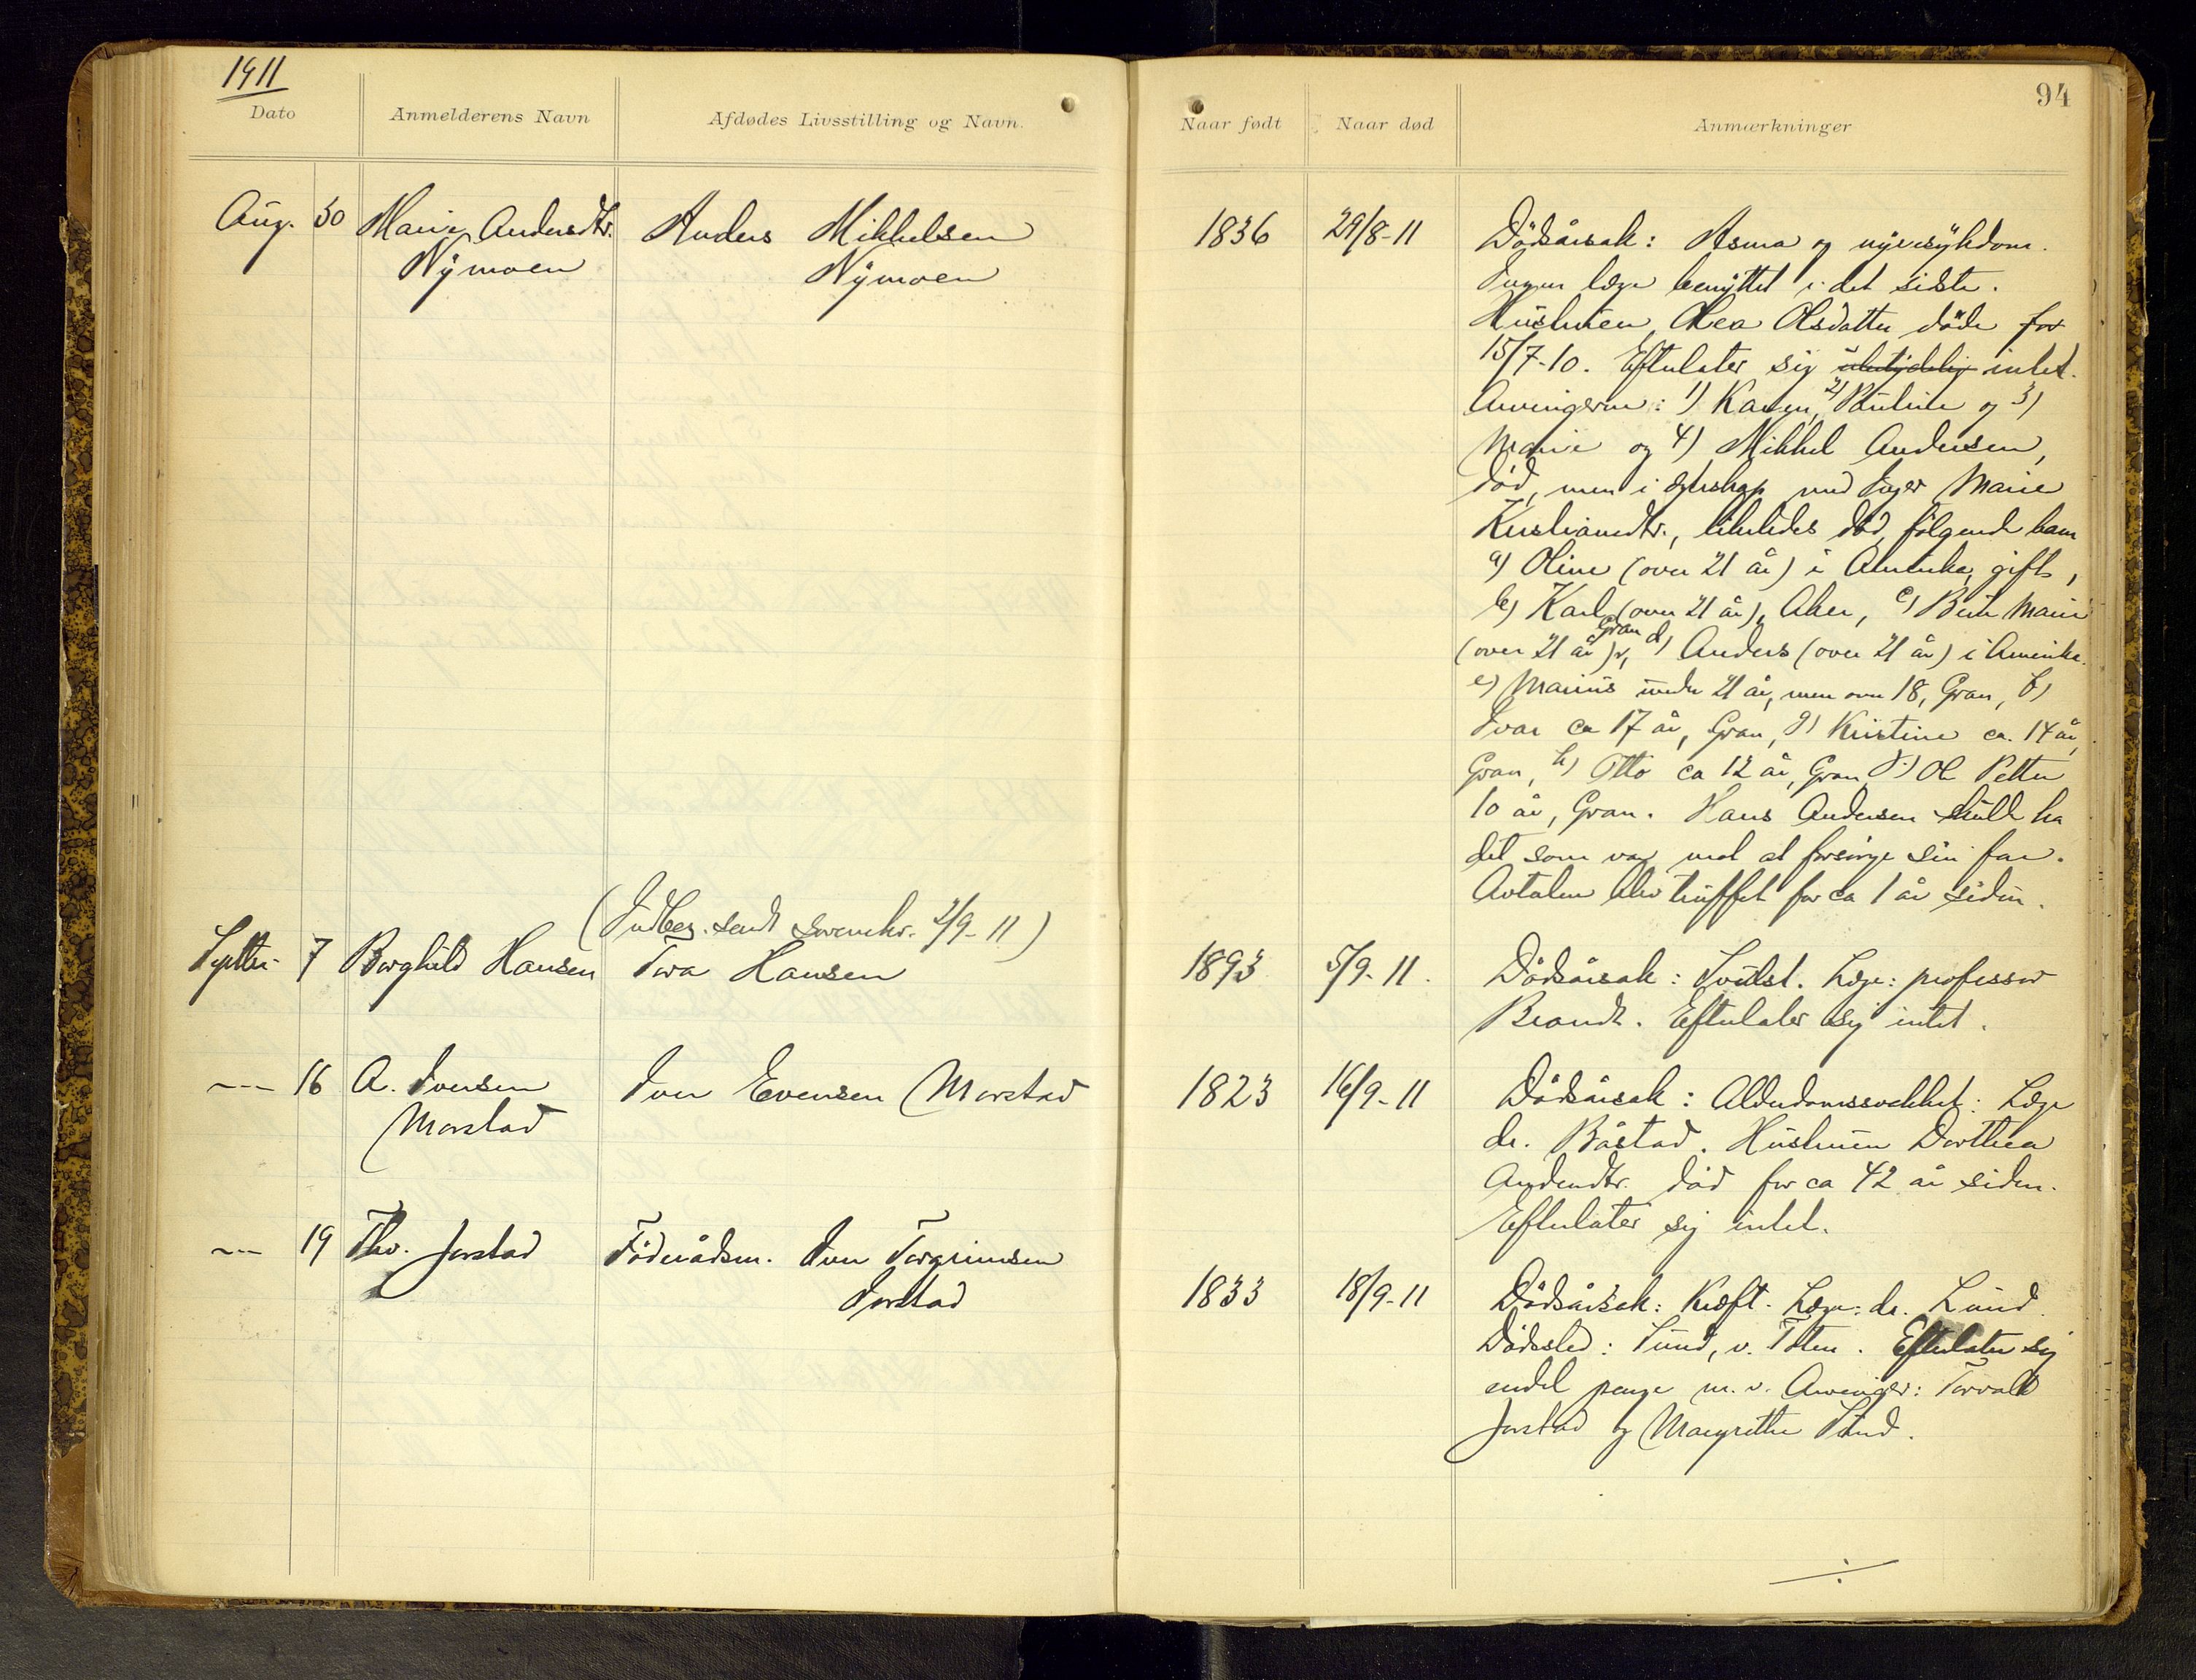 1911
94
Dato
Anmelderens Navn
Afdødes Livsstilling og Navn.
Naar født
Naar død
Anmærkninger
Aug. 30 Marie Andersdtr. Anders Mikkelsen 1836 29/8-11
Nymoen Nymoen
Dödsårsak: Asma og nyresykdom.
Ingen læge benyttet i det sidste.
Hustruen Olea Olsdatter döde for
15/7-10. Efterlater sig intet.
Arvingerne: 1) Karen, 2) Pauline og 3)
Marie og 4) Mikkel Andersen,
död, men i egteskap med Inger Marie
Kristiansdtr., likeledes död, følgende barn
a) Oline (over 21 år) i Amerika, gift,
b) Karl (over 21 år), Aker, c) Berte Marie
(over 21 år), Gran d) Anders (over 21 år) i Amerika.
e) Marius under 21 år, men over 18, Gran, f)
Ivar ca 17 år, Gran, g) Kristine ca. 14 år,
Gran, h) Otto ca 12 år, Gran j) Ole Petter
10 år, Gran. Hans Andersen skulde ha
det som var mot at forsörge sin far.
Avtalen blev truffet for ca 1 år siden.
(Indber. sendt sorenskr. 2/9-11)
Septbr. 7 Borghild Hansen Tora Hansen 1893 5/9-11.
Dödsårsak: Svulst. Læge: professor
Brandt. Efterlater sig intet.
--- 16 A. Iversen Iver Evensen Morstad 1823 16/9-11
Morstad
Dödsårsak: Alderdomssvakhet: Læge
dr. Båstad. Hustruen Dorthea
Andersdtr. död for ca 42 år siden.
Efterlater sig intet.
--- 19 Thv. Jorstad Föderådsm. Iver Torgrimsen 1833 18/9-11
Jorstad
Dödsårsak: Kræft. Læge: dr. Lund.
Dödssted: Sund, v. Toten. Efterlater sig
endel penge m.v. Arvinger: Torvald
Jorstad og Margrethe Sund.